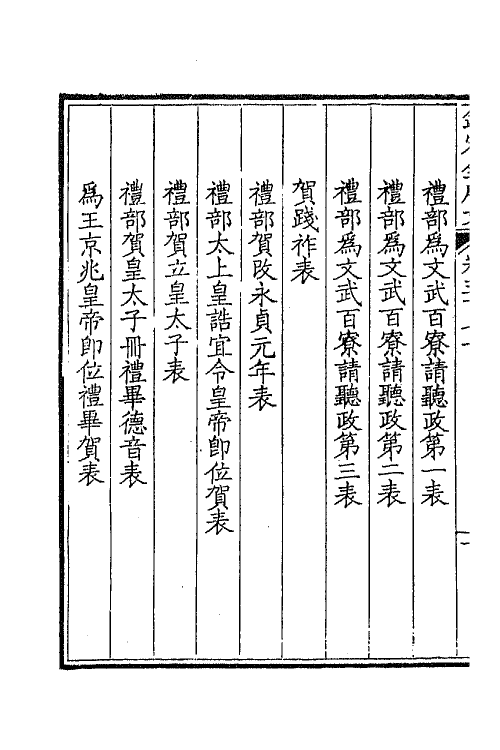 禮部爲文武百寮請聽政第一表
禮部爲文武百寮請聽政第二表
禮部爲文武百寮請聽政第三表
賀踐祚表
禮部賀改永貞元年表
禮部太上皇誥宜令皇帝卽位賀表
禮部賀立皇太子表
禮部賀皇太子冊禮畢德音表
爲王京兆皇帝卽位禮畢賀表